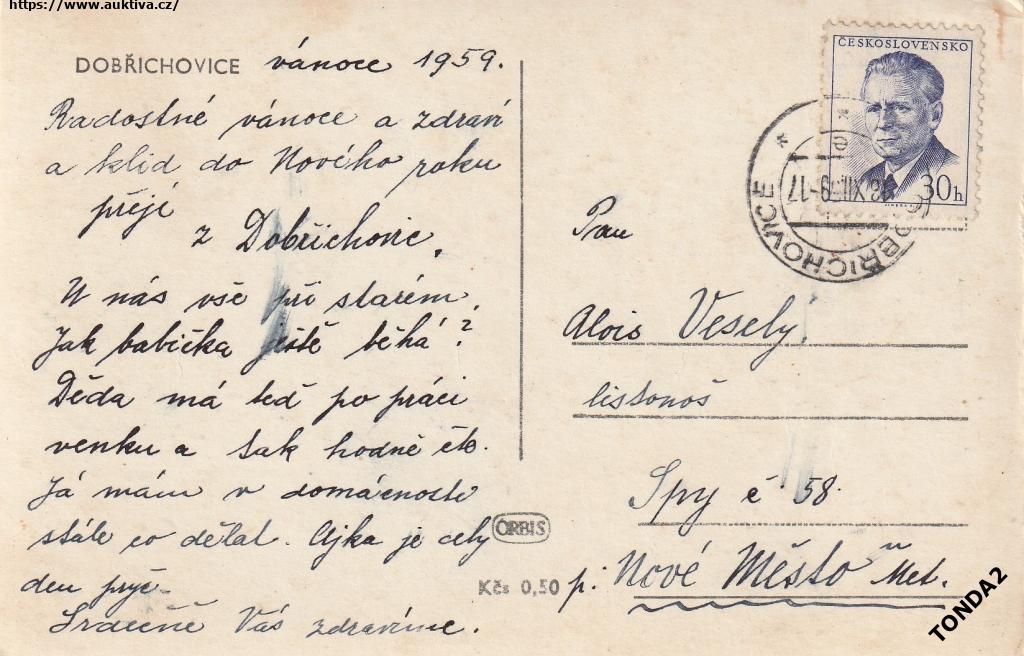 https://www.auktiva.cz/
DOBŘICHOVICE vánoce 1959.
Radostné vánoce a zdraví
a klid do Nového roku
přejí
z Dobřichovic.
U nás vše při starém.
Jak babička ještě běhá?
Děda má teď po práci
venku a tak hodně čte.
Já mám v domácnosti
stále co dělat. Ajka je celý
den pryč.
Srdečně Vás zdravíme.
ČESKOSLOVENSKO
30h
DOBŘICHOVICE
Pan
Alois Veselý
listonoš
Spy č 58.
p. Nové Město n. Met.
ORBIS
Kčs 0,50
TONDA2